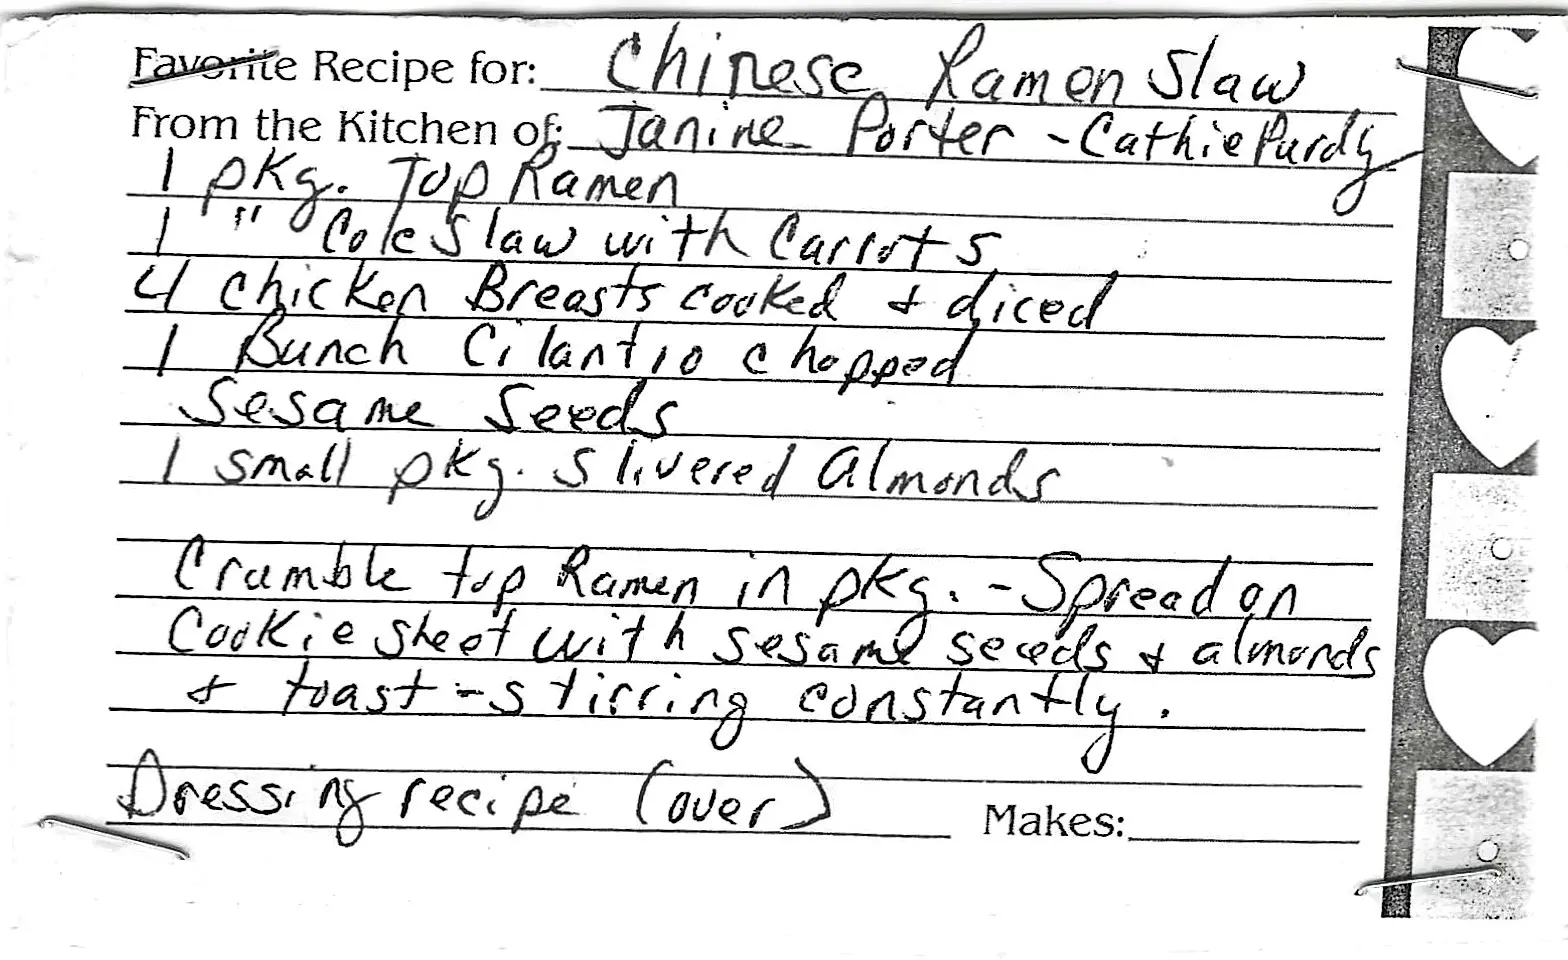 Favorite Recipe for: Chinese Ramen Slaw
From the Kitchen of: Janine Porter - Cathie Purdy
1 pkg. Top Ramen
1 " Cole Slaw with Carrots
4 Chicken Breasts cooked & diced
1 Bunch Cilantro chopped
Sesame Seeds
1 small pkg. Slivered Almonds
Crumble top Ramen in pkg. - Spread on
Cookie sheet with sesame seeds & almonds
& toast - stirring constantly.
Dressing recipe (over) Makes: